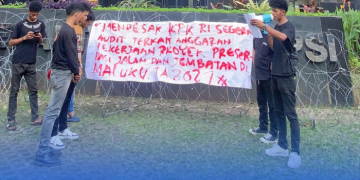 "MENDESAK KPK RI SEGERA
AUDIT TERKAIT ANGGARAN
PEKERJAAN PROYEK PRESER
VASI JALAN DAN JEMBATAN DI
MALUKU TA 2021
PSI